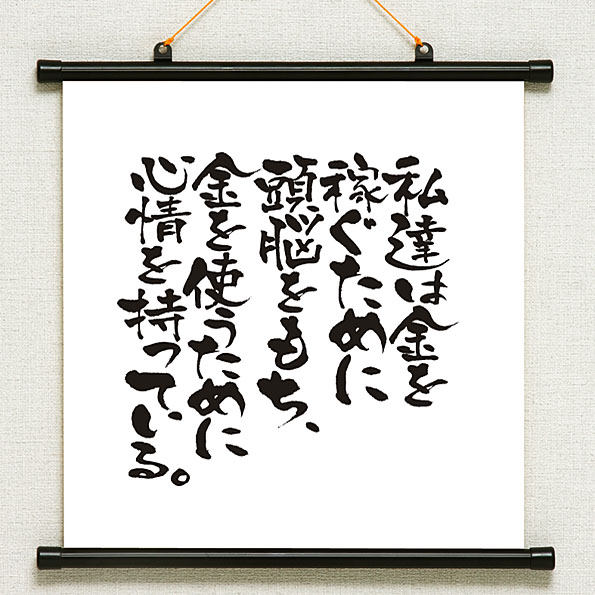 私達は金を
稼ぐために
頭脳をもち、
金を使うために
心情を持っている。